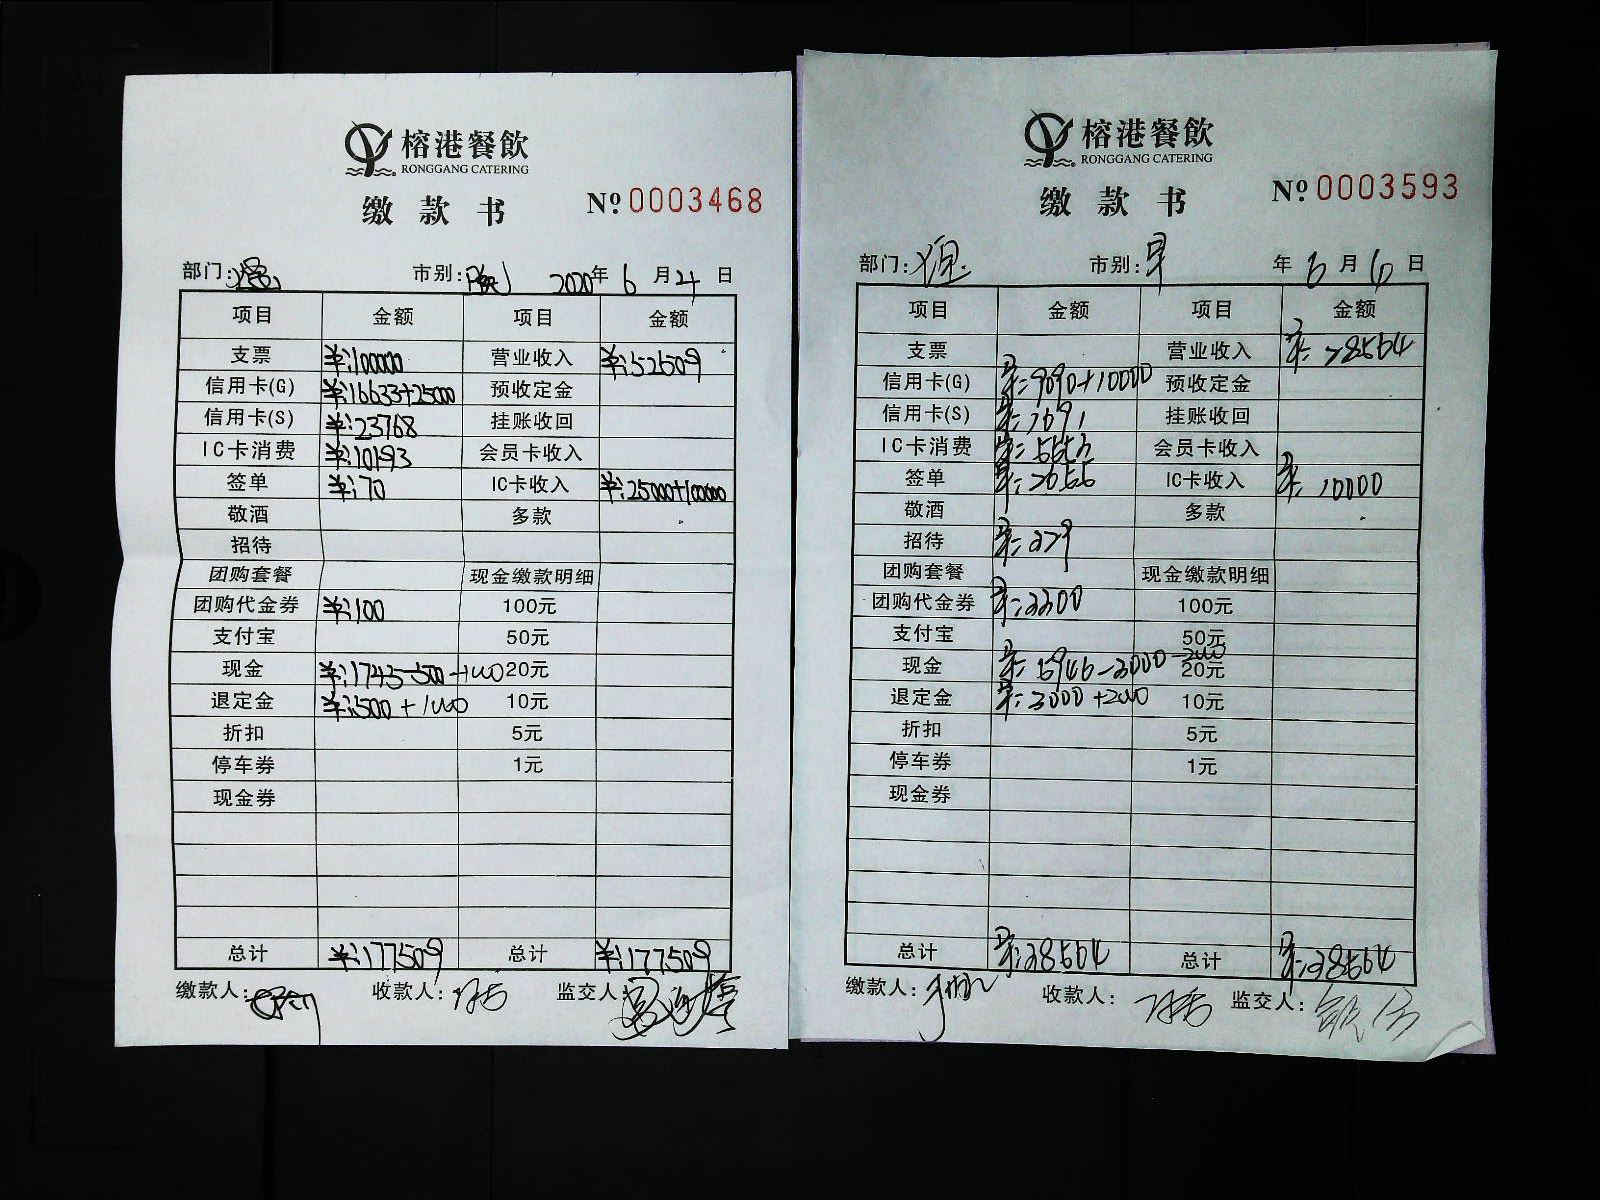 榕港餐飲
RONGGANG CATERING
缴款书 №.0003468
部门: 市别:晚 2020年6月24日
项目 金额 项目 金额
支票 ¥:100000 营业收入 ¥:52509
信用卡(G) ¥:16633+25000 预收定金
信用卡(S) ¥:23768 挂账收回
IC卡消费 ¥:10193 会员卡收入
签单 ¥:70 IC卡收入 ¥:25000+100000
敬酒 多款
招待
团购套餐 现金缴款明细
团购代金券 ¥:100 100元
支付宝 50元
现金 ¥:1745-500-1000 20元
退定金 ¥:500+1000 10元
折扣 5元
停车券 1元
现金券
总计 ¥:177509 总计 ¥:177509
缴款人: 收款人: 监交人:
榕港餐飲
RONGGANG CATERING
缴款书 №.0003593
部门: 市别:早 年6月 日
项目 金额 项目 金额
支票 营业收入 ¥:28564
信用卡(G) ¥:9090+10000 预收定金
信用卡(S) ¥:7691 挂账收回
IC卡消费 会员卡收入
签单 IC卡收入 ¥:10000
敬酒 多款
招待 ¥:279
团购套餐 现金缴款明细
团购代金券 ¥:3300 100元
支付宝 50元
现金 20元
退定金 ¥:3000+2000 10元
折扣 5元
停车券 1元
现金券
总计 ¥:38564 总计 ¥:38564
缴款人: 收款人: 监交人: